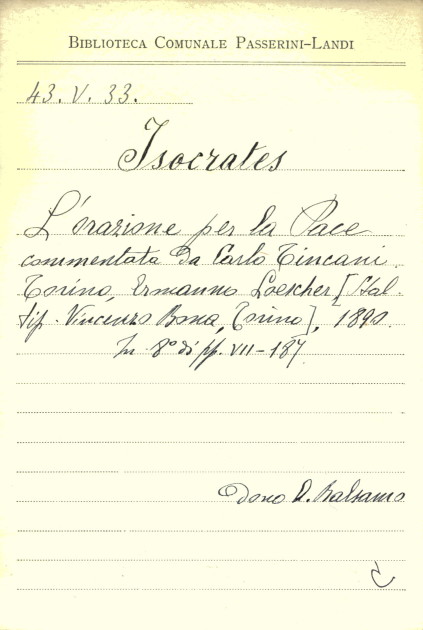 BIBLIOTECA COMUNALE PASSERINI-LANDI
43. V. 33.
Isocrates
L'orazione per la Pace
commentata da Carlo Tincani
Torino, Ermanno Loescher [Stab.
tip. Vincenzo Bona, Torino], 1890.
In 8° di pp. VII-187
Dono A. Balsamo
C